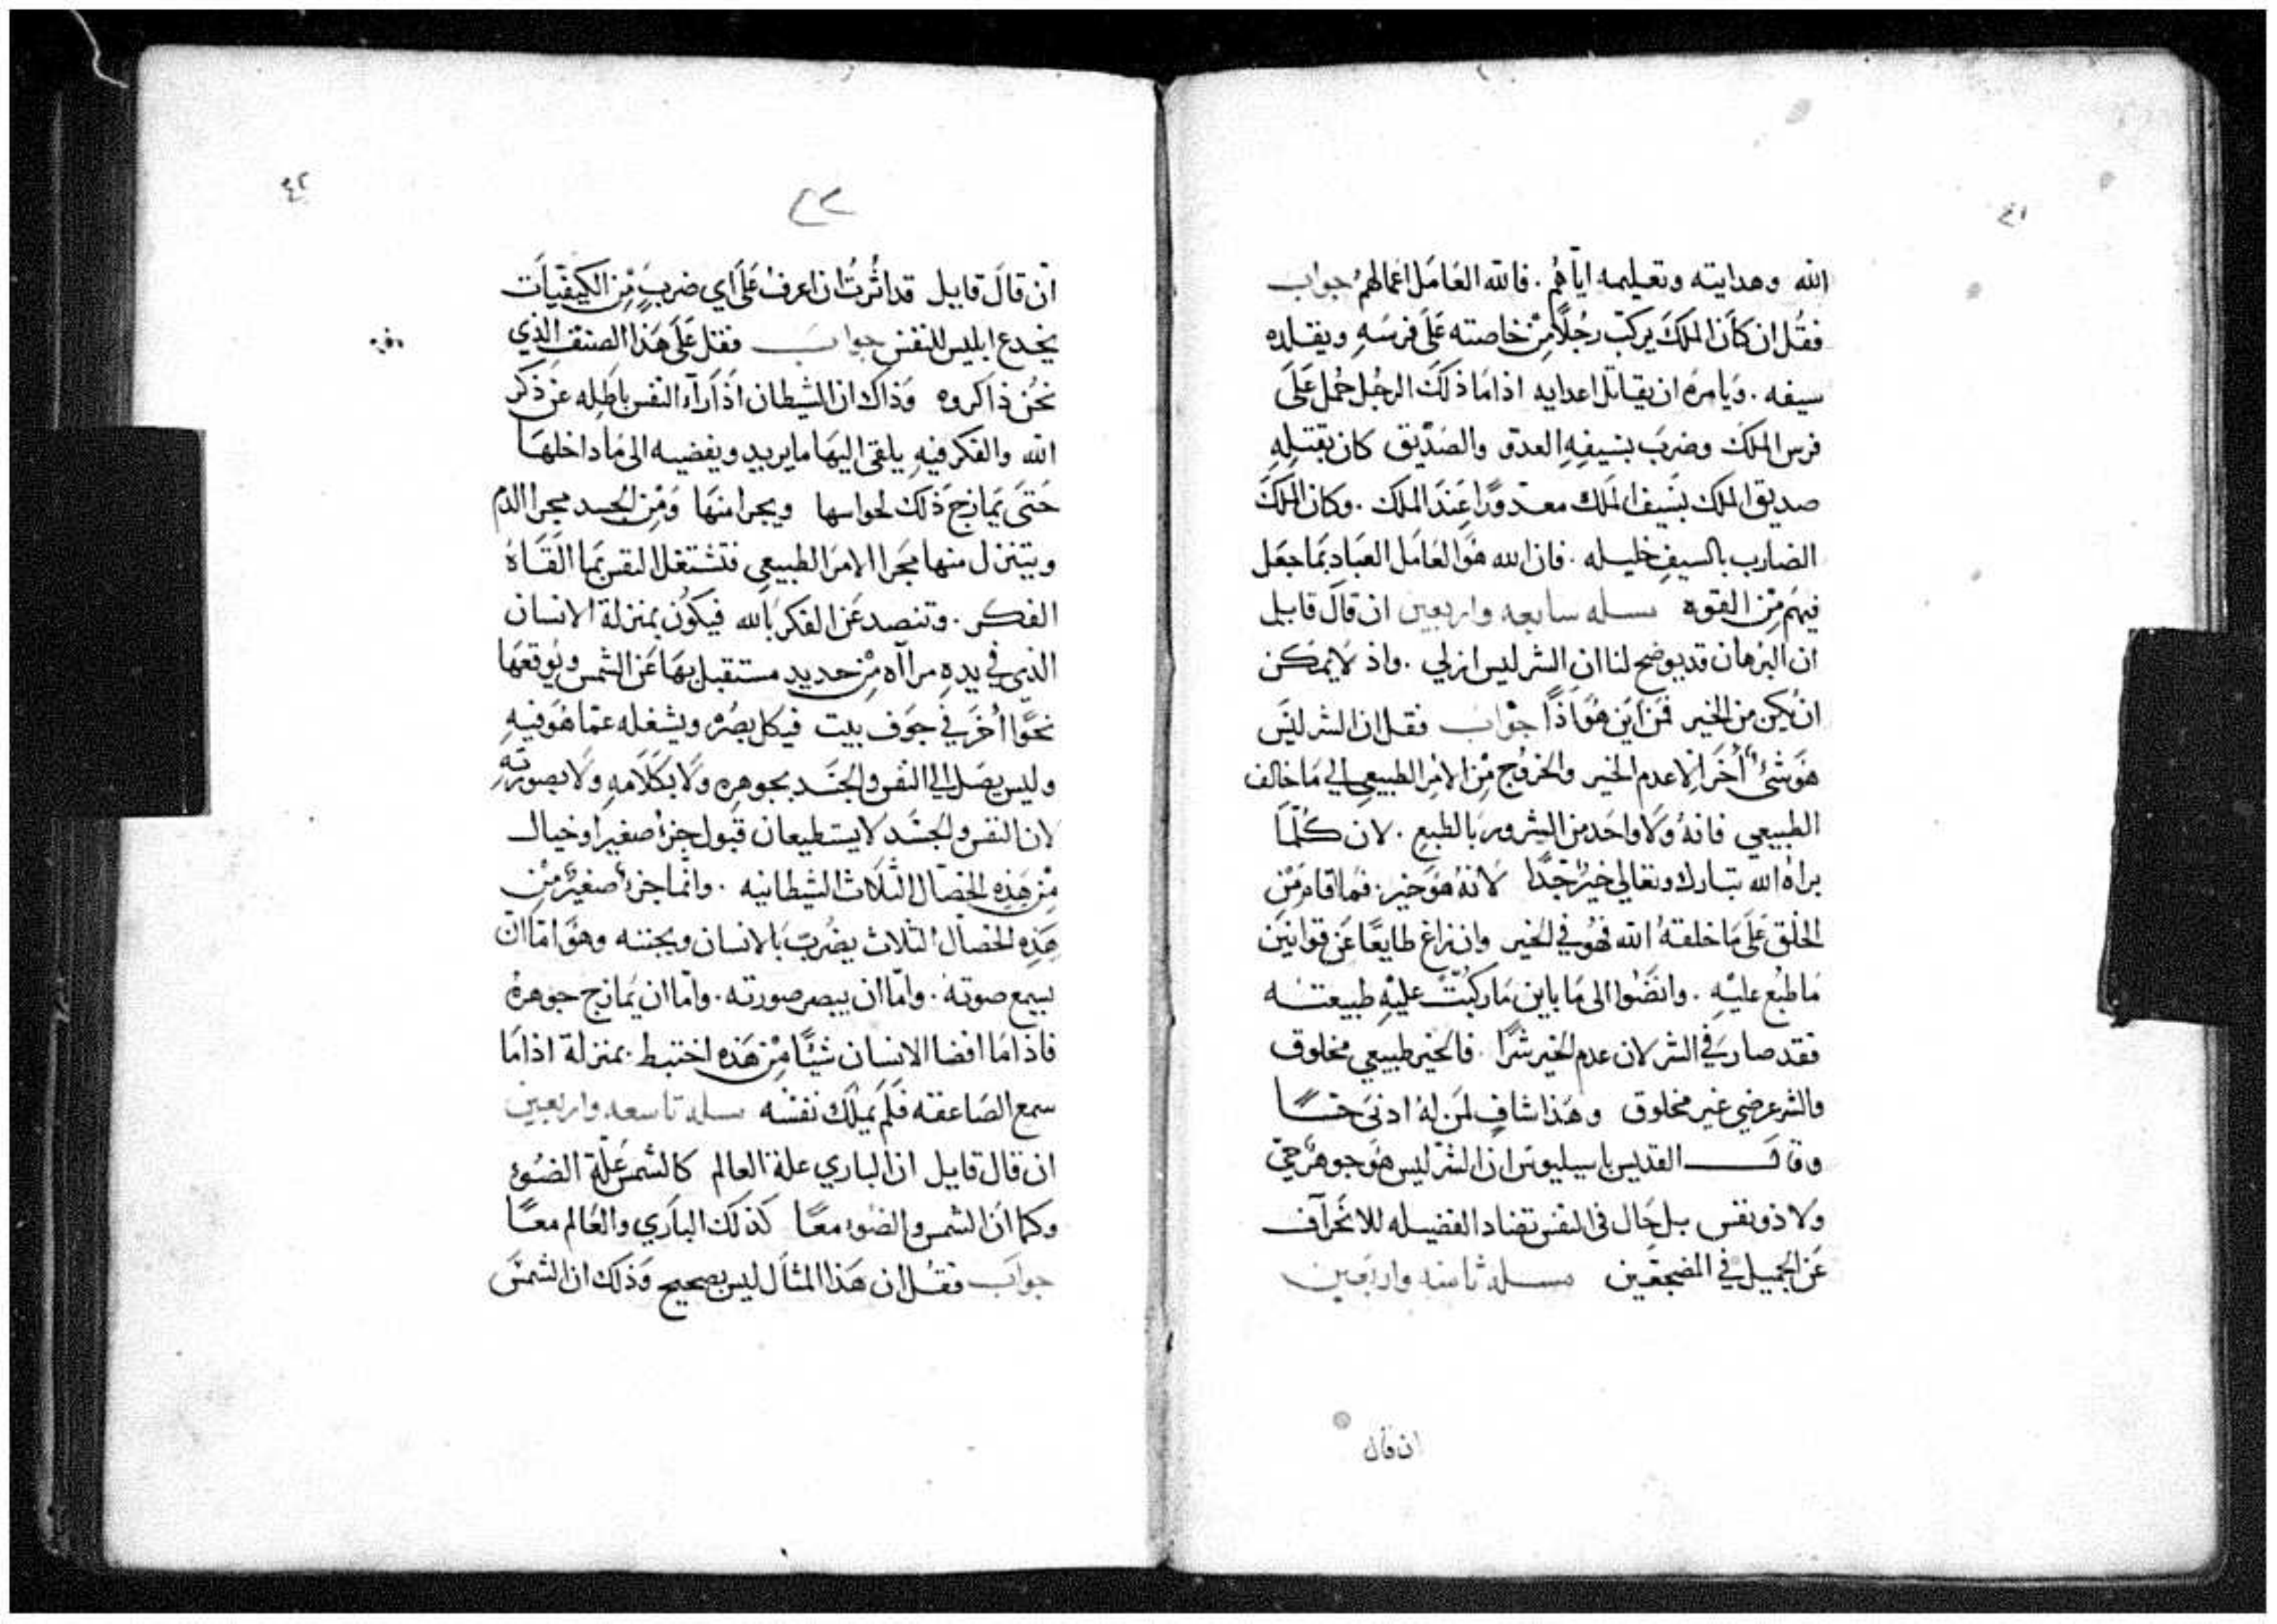 ٤١
الله وهدايته وتعليمه اياهم . فالله العامل اعمالهم جواب
فقل ان كان الملك يركب رجلاً من خاصته على فرسه ويقلده
سيفه . ويامره ان يقاتل اعدايه اذا ما ذلك الرجل حمل على
فرس الملك وضرب بسيفه العدو والصديق كان بقتله
صديق الملك بسيف الملك معدوداً عند الملك . وكان الملك
الضارب بالسيف خليله . فان الله هو العامل العباد بما جعل
فيهم من القوه مسله سابعه واربعين ان قال قايل
ان البرهان قد يوضح لنا ان الشر ليس ازلي . واذ لا يمكن
ان يكن من الخير فمن اين هو اذاً جواب فقل ان الشر ليس
هو شئ اخر الا عدم الخير والخروج من الامر الطبيعي الي ما خالف
الطبيعي فانه ولا واحد من الشرور بالطبع . لان كلما
براه الله تبارك وتعالي خير جداً لانه هو خير . فما قام من
الخلق على ما خلقه الله فهو في الخير وان زاغ طايعاً عن قوانين
ما طبع عليه . وانضوا الى ما باين ما ركبت عليه طبيعته
فقد صار في الشر لان عدم الخير شراً . فالخير طبيعي مخلوق
والشر عرضي غير مخلوق وهذا شاف لمن له ادنى حساً
وقال القديس باسيليوس ان الشر ليس هو جوهر حي
ولا ذو نفس بل حال في النفس تضاد الفضيله للانحراف
عن الجميل في المضجعين مسله ثامنه واربعين
ان قال
٤٢
ان قال قايل قد اثرت ان اعرف على اي ضرب من الكيفيات
يخدع ابليس للنفس جواب فقل على هذا الصنف الذي
نحن ذاكروه وذاك ان الشيطان اذا راء النفس باطله عن ذكر
الله والفكر فيه يلقى اليها ما يريد ويفضيه الى ما داخلها
حتى يمازج ذلك لحواسها ويجرا منها ومن الجسد مجرا الدم
ويتنزل منها مجرا الامر الطبيعي فتشتغل النفس بما القاه
الفكر . وتنصد عن الفكر بالله فيكون بمنزلة الانسان
الذي في يده مرااه من حديد مستقبل بها عن الشمس ويوقعها
نحوا اخر في جوف بيت فيكل بصره ويشغله عما هو فيه
وليس يصل الي النفس والجسد بجوهره ولا بكلامه ولا بصورته
لان النفس والجسد لا يستطيعان قبول جزء صغيرا وخيال
من هذه الخصال الثلاث الشيطانيه . وانما جزء صغير من
هذه الخصال الثلاث يضرب بالانسان ويجننه وهو اما ان
يسمع صوته . واما ان يبصر صورته . واما ان يمازج جوهره
فاذا ما افضا الانسان شيئاً من هذه اختبط بمنزلة اذا ما
سمع الصاعقه فلم يملك نفسه مسله تاسعه واربعين
ان قال قايل ان الباري علة العالم كالشمس علة الضوء
وكما ان الشمس والضوء معاً كذلك الباري والعالم معاً
جواب فقل ان هذا المثال ليس بصحيح وذلك ان الشمس